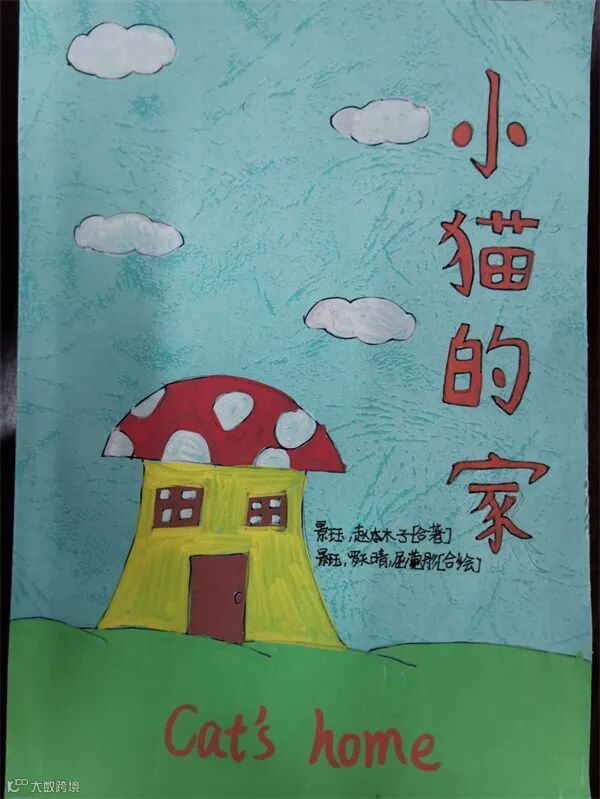 小猫的家
景珏,赵本木子[合著]
景珏,罗天晴,巫蕙彤[合绘]
Cat's home
大数跨境